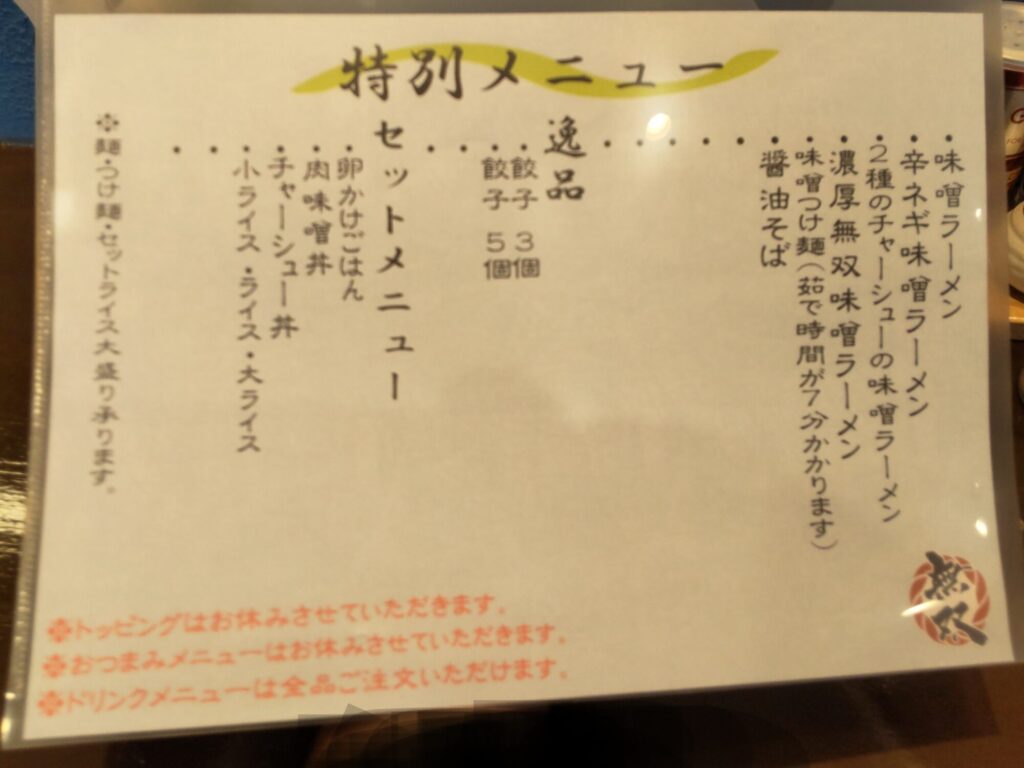 特別メニュー
・味噌ラーメン
・辛ネギ味噌ラーメン
・2種のチャーシューの味噌ラーメン
・濃厚無双味噌ラーメン
・味噌つけ麺(茹で時間が7分かかります)
・醤油そば
逸品
・餃子 3個
・餃子 5個
セットメニュー
・卵かけごはん
・肉味噌丼
・チャーシュー丼
・小ライス・ライス・大ライス
※麺・つけ麺・セットライス大盛り承ります。
※トッピングはお休みさせていただきます。
※おつまみメニューはお休みさせていただきます。
※ドリンクメニューは全品ご注文いただけます。
無双